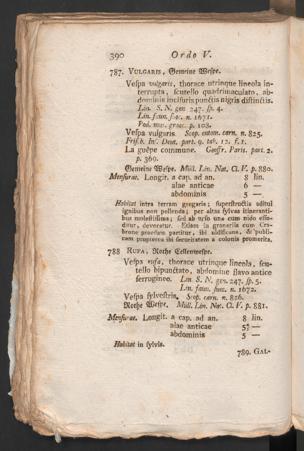 390 Ordo V.
787. VULGARIS, Gemeine Wespe.
Vespa vulgaris, thorace utrinque lineola in-
terrupta, scutello quadrimaculato, ab-
dominis incisuris punctis nigris distinctis.
Lin. S. N. gen 247. sp. 4.
Lin. faun. suec. n. 1671.
Pod. mus. graec. p. 108.
Vespa vulgaris. Scop. entom. carn. n. 825.
Frisch. In. Deut. part. 9. tab. 12. f. 1.
La guêpe commune. Geoffr. Paris. part. 2.
p. 369.
Gemeine Wespe. Müll. Lin. Nat. Cl. V. p. 880.
Mensurae. Longit. a cap. ad an. 8 lin.
alae anticae 6 —
abdominis 5 —
Habitat intra terram gregaria; superstructis oditul
ignibus non pellenda; per altas sylvas itineranti-
bus molestissima; sed ab urso una cum nido effo-
ditur, devoratur. Etiam in granariis cum Cra-
brone praesens pariter, ibi nidificans, &
cam pruprerea ibi securitatem a colonis promerita.
788 RUFA, Rothe Wespe.
Vespa rufa, thorace utrinque lineola, scu-
tello bipunctato, abdomine flavo antice
ferrugineo. Lin S. N. gen. 247. sp. 5.
Lin. faun. suec. n. 1672.
Vespa sylvestris. Scop. carn. n. 826.
Rothe Wespe. Müll. Lin. Nat. Cl. V. p. 881.
Mensurae. Longit. a cap. ad an. 8 lin.
alae anticae 5½ —
abdominis 5 —
Habitat in sylvis.
789. GAL-